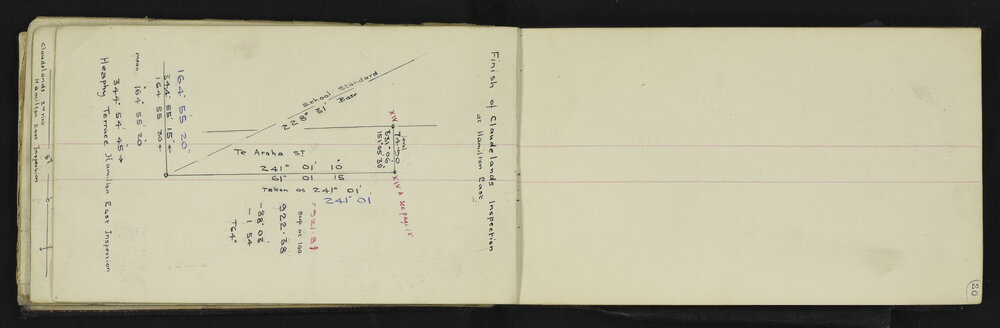 Finish of Claudelands Inspection
at Hamilton East
School Standard
Base
228° 51'
XIV
74·30
331° 06'
151° 05' 20"
XIV A see page 18
Te Aroha St.
241° 01' 10"
61° 01' 15
Taken as 241° 01'
241° 01
164° 55' 20"
344° 55' 15"
164 55 20
mean 164° 55' 20
344° 54' 45
Heaphy Terrace Hamilton East Inspection
sup at 100
922·38
-88° 03'
-1 54
T64°
Hamilton East Inspection
20